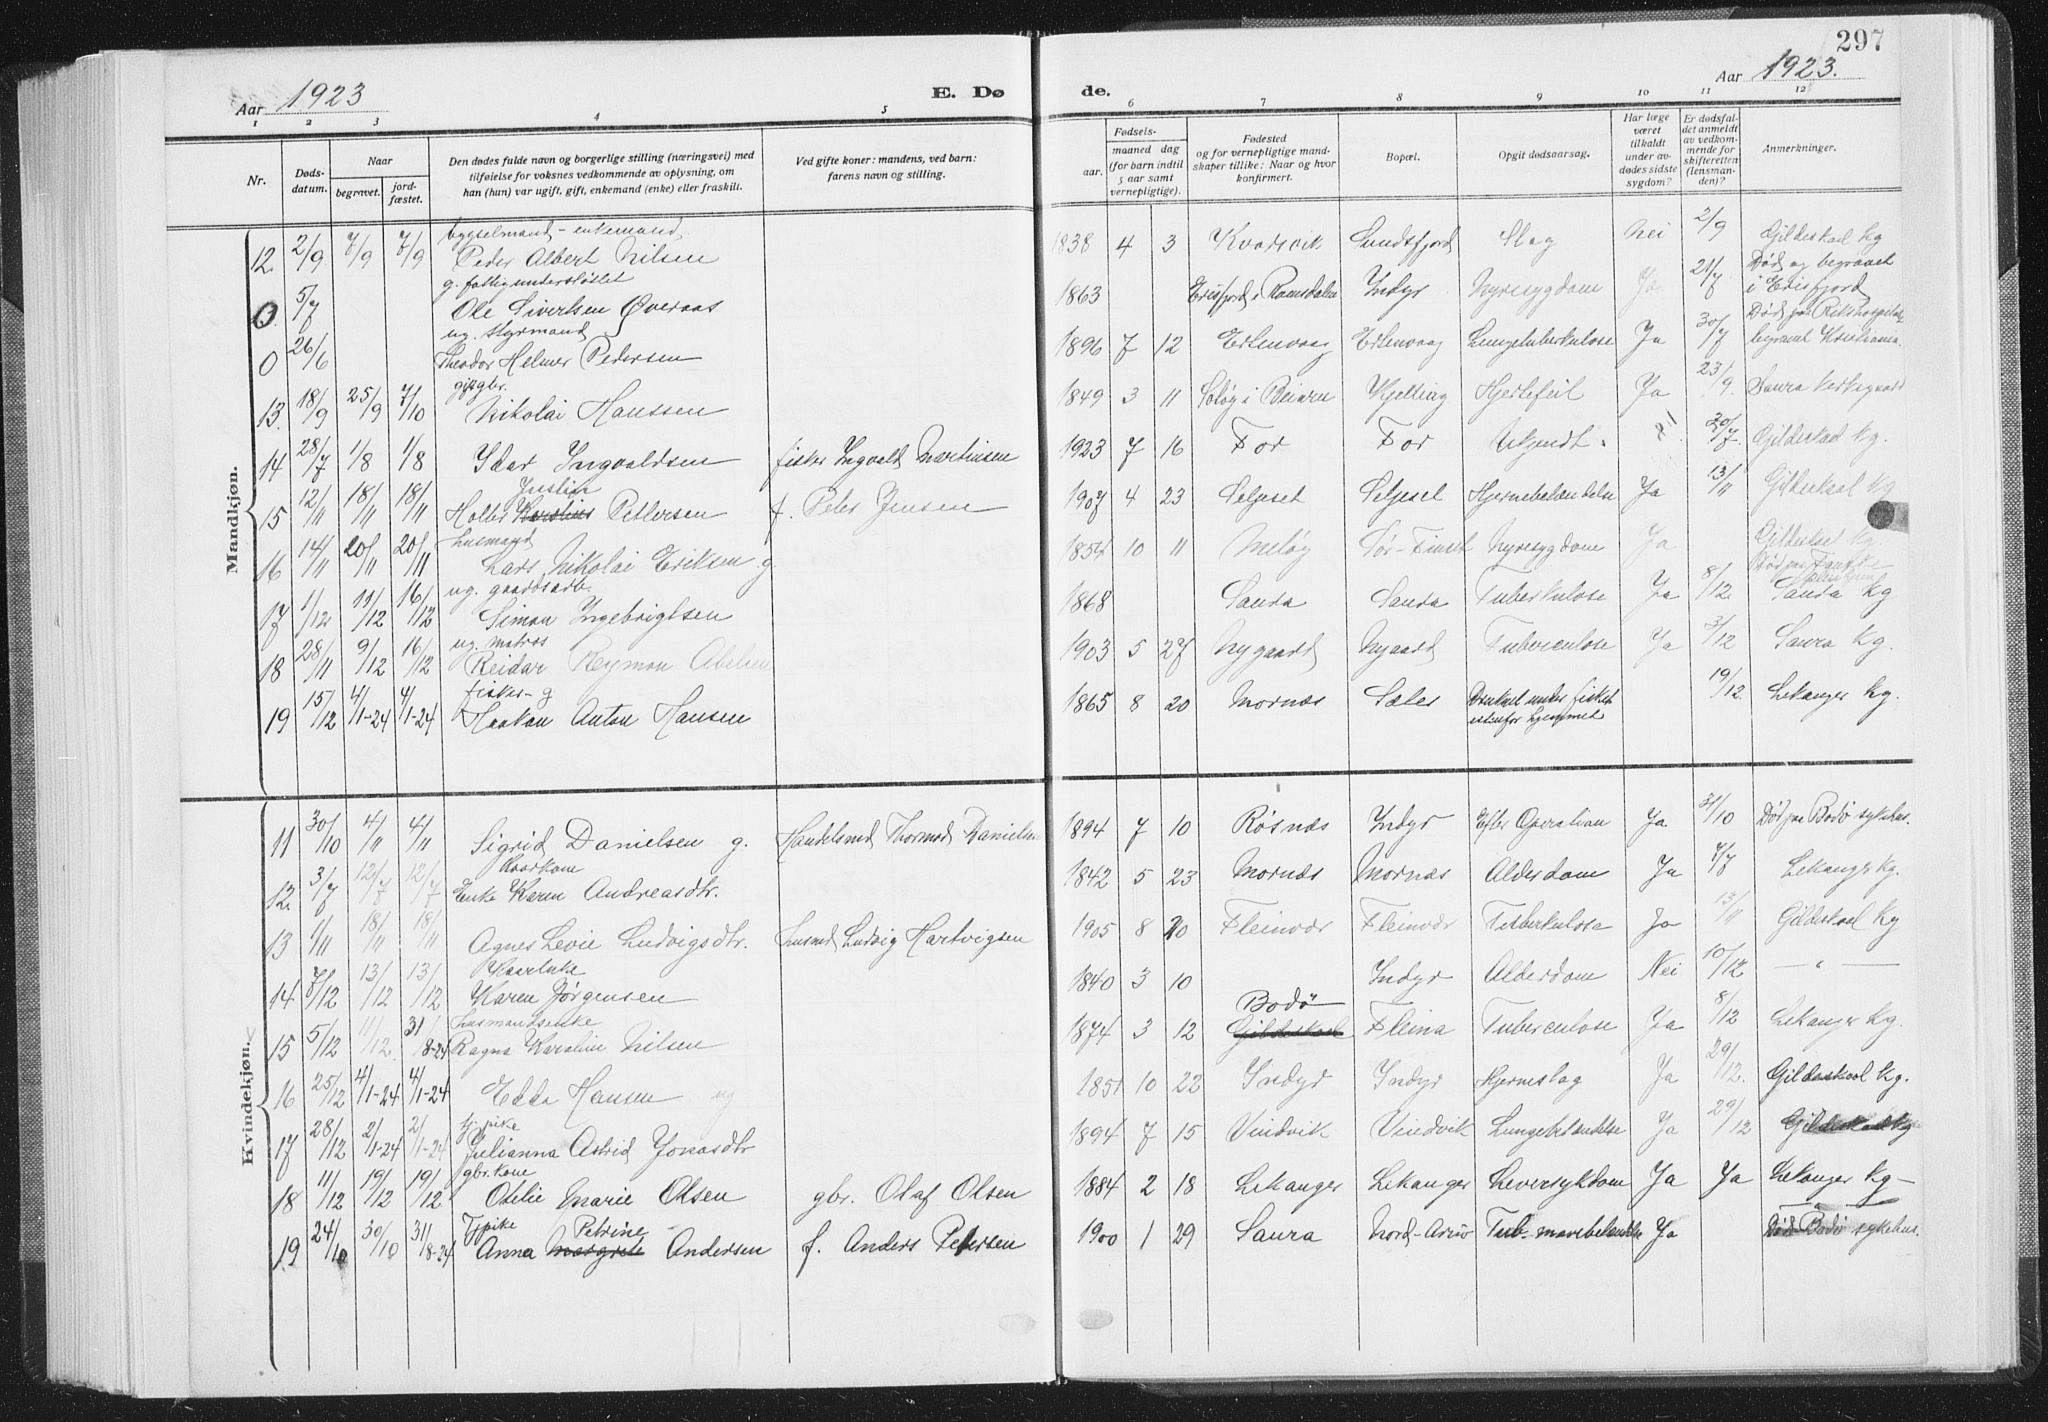 297
Aar 1923 E. Dø de. Aar 1923.
1 2 3 4 5 6 7 8 9 10 11 12
Nr. Døds-datum. Naar begravet. jord-fæstet. Den dødes fulde navn og borgerlige stilling (næringsvei) med tilføielse for voksnes vedkommende av oplysning, om han (hun) var ugift, gift, enkemand (enke) eller fraskilt. Ved gifte koner: mandens, ved barn: farens navn og stilling. Fødsels- aar. maaned dag (for barn indtil 5 aar samt vernepligtige). Fødested og for vernepligtige mandskaper tillike: Naar og hvor konfirmert. Bopæl. Opgit dødsaarsag. Har læge været tilkaldt under avdødes sidste sygdom? Er dødsfaldet anmeldt av vedkommende for skifteretten (lensmanden)? Anmerkninger.
Mandkjøn.
bygselmand - enkemand
12. 2/9 7/9 7/9 Peder Albert Nilsen 1838 4 3 Kvarsvik Sundsfjord Slag Nei 2/9 Gildeskaal kg
g. fattigunderstøttet
0. 5/7 Ole Sivertsen Øveraas 1863 Eirisfjord i Romsdalen Indyr Nyresygdom Ja 21/7 Død og begravet i Eirisfjord
ug. styrmand
0 26/6 Theodor Helmer Pedersen 1896 7 12 Erlenvaag Erlenvaag Lungetuberkulose Ja 30/7 Død paa Rikshospital begravet Kristiania.
gift gbr.
13. 18/9 25/9 7/10 Nikolai Hanssen 1849 3 11 Soløy i Beiarn Kjelling Hjertefeil Ja 23/9. Saura kirkegaard
14 28/7 1/8 1/8 Ydar Ingvaldsen fisker Ingvald Martinsen 1923 7 16 For For Ukjendt. 30/7. Gildeskaal kg.
Justin
15 12/11 18/11 18/11 Holter Karolius Pettersen f. Peter Jensen 1907 4 23 Seljeset Seljeset Hjernebetændelse Ja 13/11 Gildeskaal kg
husmand
16 14/11 20/11 20/11 Lars Nikolai Eriksen g 1854 10 11 Meløy Sør-Finset Nyresygdom Ja Gildeskaal kg
Død paa Fauske
ug. gaardsarb.
17 1/12 11/12 16/12 Simon Ingebrigtsen 1868 Sanda Sanda Tuberkulose Ja 8/12. Sanda kg
ug. matros
18 28/11 9/12 16/12 Reidar Reymon Abelsen 1903 5 27 Nygaard Nygaard Tuberculose Ja 3/12 Saura kg.
fisker- g
19 15/12 4/1-24 4/1-24 Haakon Anton Hansen 1865 8 20 Mornæs Sæter Druknet under fiske utenfor hjemmet 19/12. Lekanger kg.
Kvindekjøn.
11 30/10 4/11 4/11 Sigrid Danielsen g. Handelsmd Thormod Danielsen 1894 7 10 Røsnæs Indyr Efter Operation Ja 31/10 Død paa Bodø sykehus.
12. 3/7 12/7 12/7 Enke Karen Andreasdtr. 1842 5 23 Mornæs Mornæs Alderdom Ja 7/7 Lekanger kg.
13 1/11 18/11 18/11 Agnes Levie Ludvigsdtr. husmd Ludvig Hartvigsen 1905 8 20 Fleinvær Fleinvær Tuberkulose Ja 13/11 Gildeskaal kg
14 7/12 13/12 13/12 Karen Jørgensen 1840 3 10 Indyr Alderdom Nei 10/12 — " —
husmandsenke
15 5/12 11/12. 31/8-24 Ragna Karoline Nilsen 1874 3 12 Bodø Gildeskaal Fleina Tuberculose Ja 8/12 Lekanger kg.
16 25/12 4/1-24 4/1-24 Edda Hansen ug 1851 10 22 Indyr Indyr Hjerneslag Ja 29/12. Gildeskaal kg.
tj. pike
17 28/12 2/1-24 2/1-24 Julianna Astrid Jonasdtr 1894 7 15 Vindvik Vindvik Lungebetændelse Ja 29/12 Gildeskaal kg
gbr. kone
18 11/12 19/12 19/12 Otelie Marie Olsen gbr. Olaf Olsen 1884 2 18 Lekanger Lekanger Leversykdom Ja Ja Lekanger kg —
Tj. pike Petrine
19 24/10 30/10 31/8-24 Anna Margrete Andersen f. Anders Petersen 1900 1 29 Saura Nord-Arnøy Tub. mavebetændelse Ja Død Bodø sykehus.